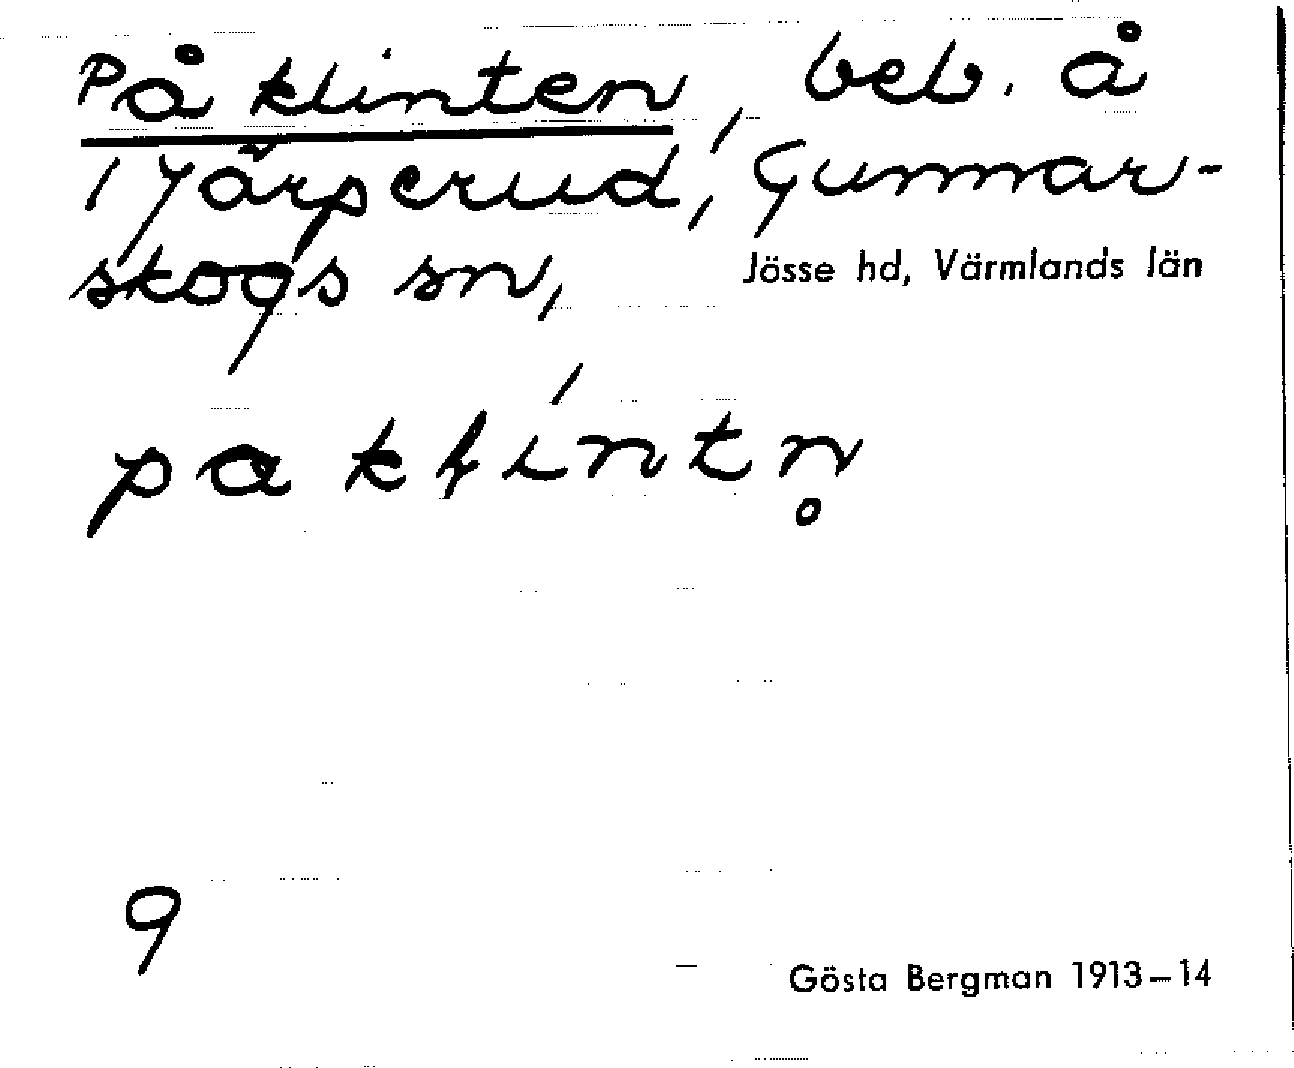 På klinten, beb. å
1 Järperud, Gunnar-
skogs sn, Jösse hd, Värmlands län
pa kḷíntn̥
9
Gösta Bergman 1913–14